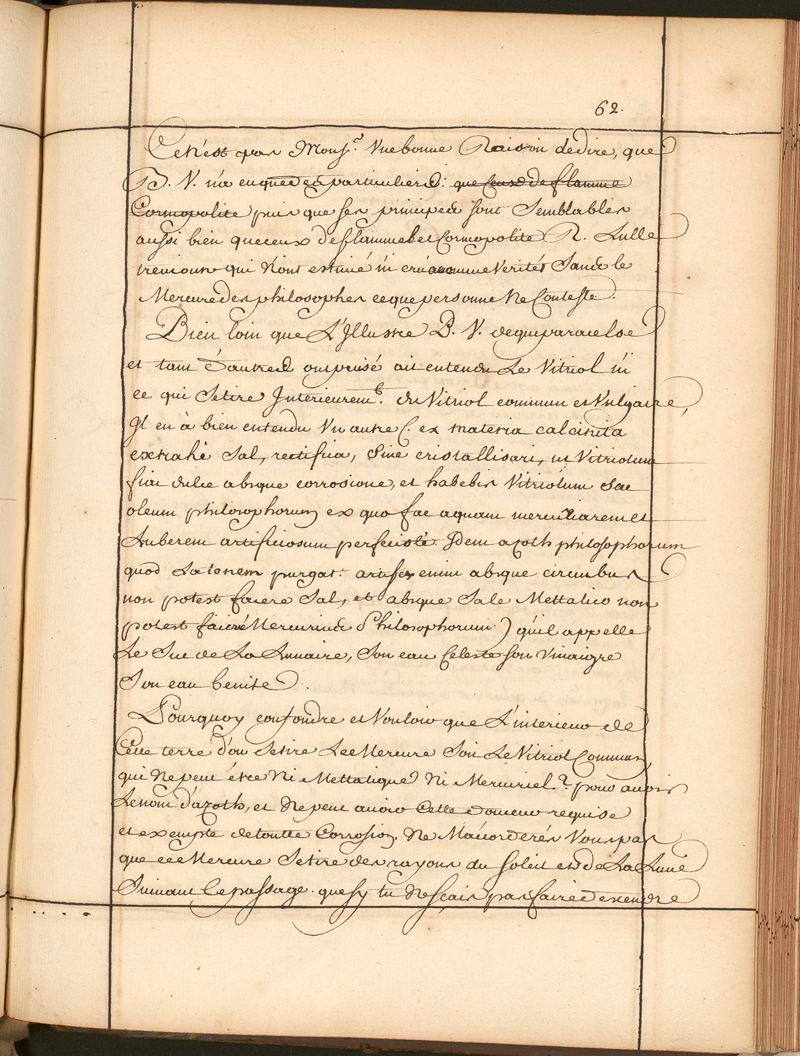 62.
Ce n'est pas Monsr. Vne bonne Raison de dire, que
B. V. n'a en que des particuliers: que ceux de flamme
Cosmopolite puis que ses principes sont Semblables
aussi bien que ceux de flammel et Cosmopolite R. Lulle
qui n'ont estimé ni cru aucune Verités Sans le
Mercure des philosophes ce que personne Ne Conteste.
Bien loin que L'Illustre B. V. de qui paracelse
et tant d'autres ont puisé ait entendu Le Vitriol ni
ce qui Se tire Interieuremt. du Vitriol commun et Vulgaire,
Il en à bien entendu Vn autre C. ex materia calcinita
extrahe Sal, rectifica, Sine cristallisari, ut Vitriolum
fiat dulce absque corrosione, et habebis Vitriolum Sac
oleum philosophorum ex quo fac aquam mercurialem et
artificiosum perfecisté. Idem azoth philosophorum
quod Latonem purgat: artifex enim absque cineribus
non potest facere Sal, et absque Sale Mettalico non
potest facere Mercurium Philosophorum) qu'il appelle
Le Suc de La Lunaire, Son eau Celeste son Vinaigre
Son eau benite.
Pourquoy confondre et Vouloir que L'interieur de
Cette terre d'ou Se tire Le Mercure Soit Le Vitriol Commun,
qui Ne peut étre Ni Mettalique Ni Mercuriel? pour avoir
Le nom d'azoth, et Ne peut avoir Cette douceur requise
et exempte de toutte Corrosion. Ne M'accorderés Vous pas
que ce Mercure Se tire des rayons du Soleil et de La Lune
Suivant le passage que Sy tu Ne Sçais pas faire descendre